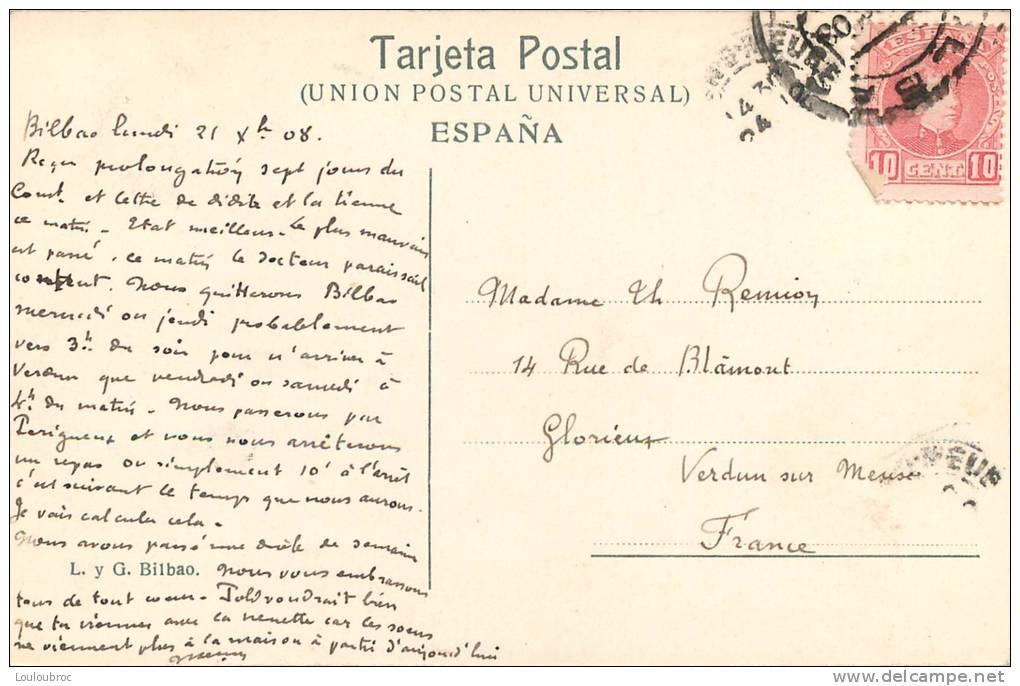 Tarjeta Postal
(UNION POSTAL UNIVERSAL)
ESPAÑA
ESPAÑA
10 CENT. 10
Bilbao lundi 21 Xbre 08.
Reçu prolongation sept jours du
Court. et lettre de didite et la tienne
ce matin - Etat meilleur - Le plus mauvais
est passé, ce matin le docteur paraissait
content. Nous quitterons Bilbao
mercredi ou jeudi probablement
vers 3h. du soir pour n'arriver à
Verdun que vendredi ou samedi à
4h. du matin - Nous passerons par
Perigueux et vous nous arrêterons
un repas ou simplement 10' à l'arrêt
c'est suivant le temps que nous aurons.
Je vais calculer cela -
Nous avons passé une drôle de semaine
L. y G. Bilbao.
Nous vous embrassons
tous de tout coeur - voudrait bien
que tu viennes avec la car les soeurs
ne viennent plus à la maison à partir d'aujourd'hui
Madame Th Remion
14 Rue de Blâmont
Glorieux
Verdun sur Meuse
France
© Louloubroc